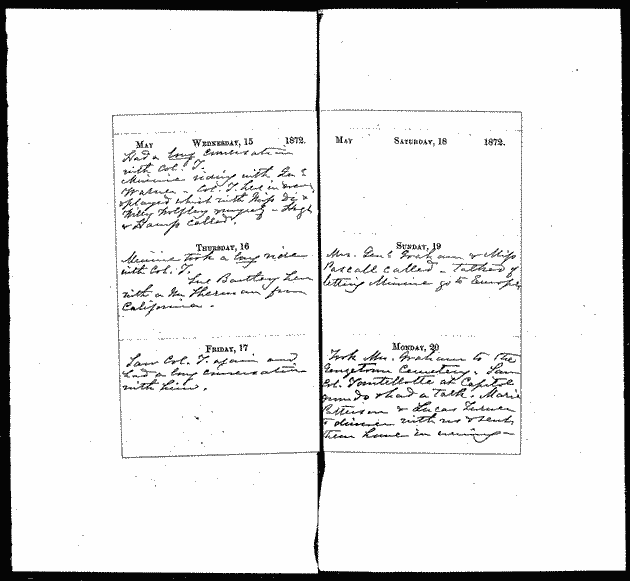 May Wednesday, 15 1872.
Had a long conversation
with Col. T.
Minnie riding with Gen'l
Warner - Col. T. here in eve
& played whist with Miss
Willy Wolfley myself -
& Hamp called.
Thursday, 16
Minnie took a long ride
with Col. T.
Sue Barthey here
with a Mr. Sherman from
California.
Friday, 17
Saw Col. T. again and
had a long conversation
with him.
May Saturday, 18 1872.
Sunday, 19
Mrs. Gen'l Graham & Miss
Pascall called - talked of
letting Minnie go to Europe
Monday, 20
Took Mrs. Graham to the
Georgetown Cemetery. Saw
Col. at Capitol
grounds & had a talk. Marie
Patterson & Lucas Turner
to dinner with us & sent
them home in evening -